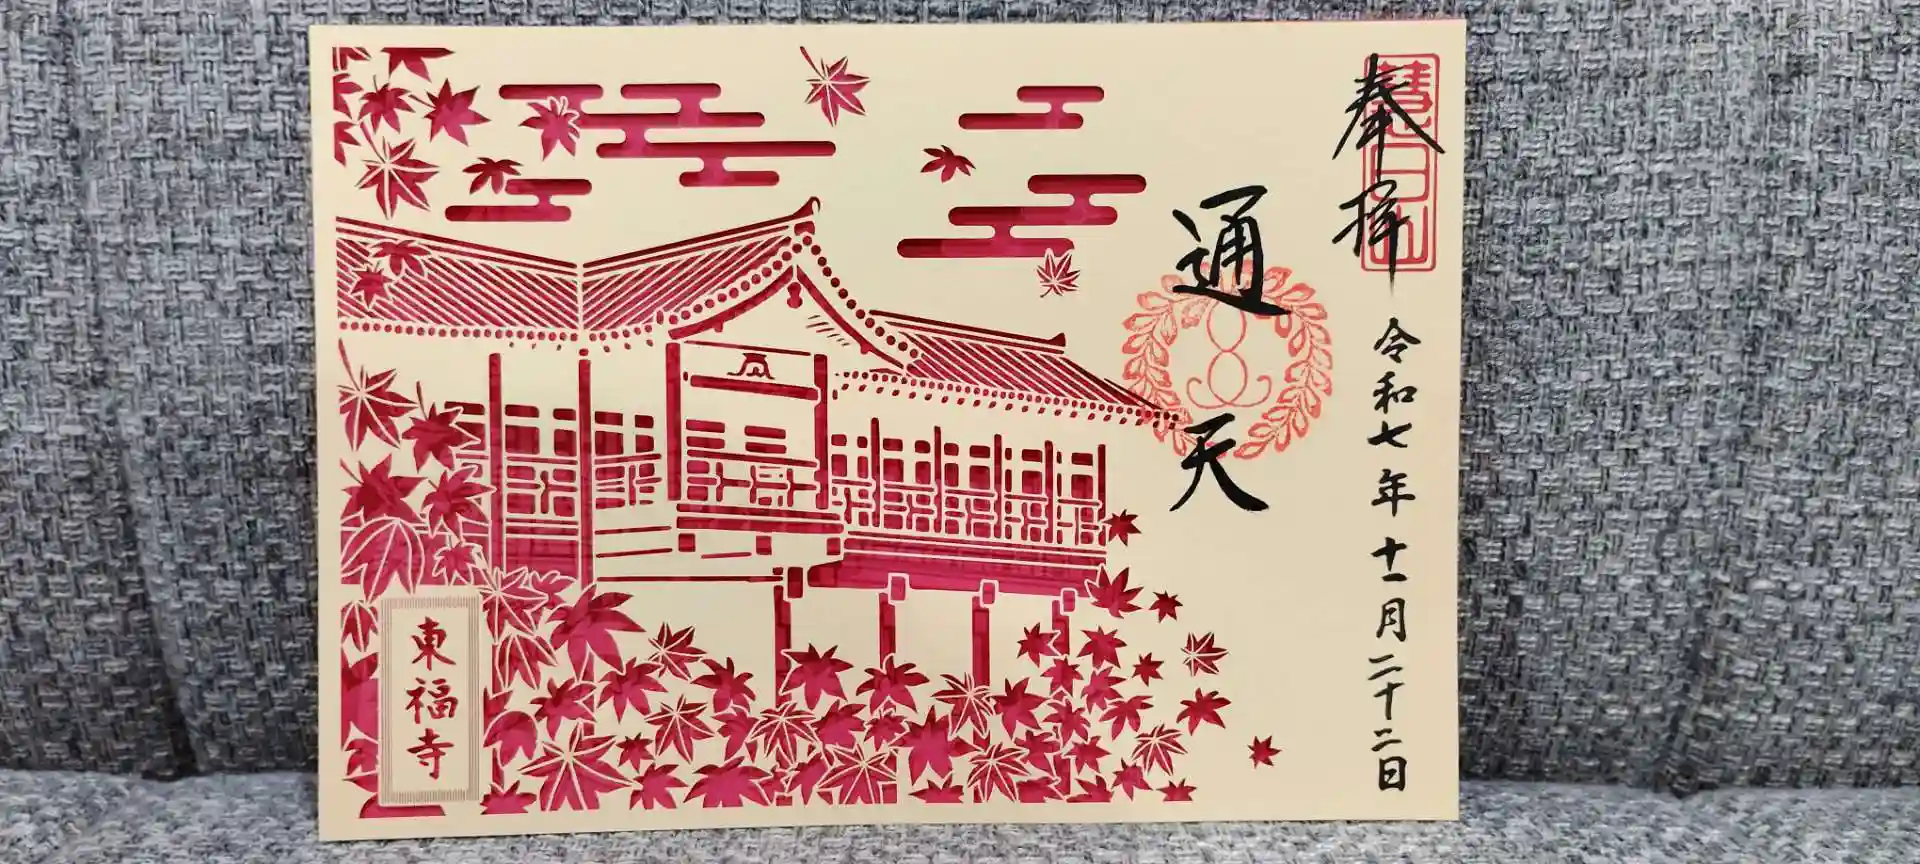 奉拝
慧日山
令和七年十一月二十二日
通天
東福寺